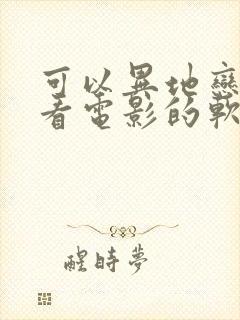 可以異地戀
看電影的軟
醒時夢